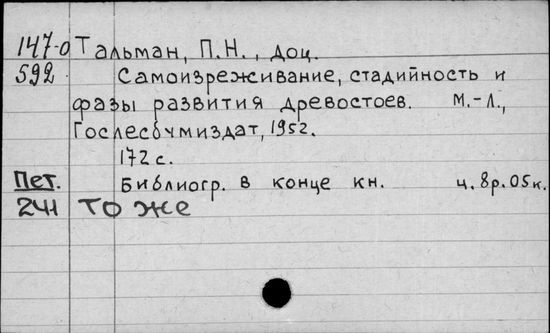 147-0 Тальман, П.Н., доц.
592 Самоизреживание, стадийность и
фазы развития древостоев. М.-Л.,
Гослесбумиздат, 1952.
172 с.
Пет. Библиогр. в конце кн. ц. 8р. 05к.
241 то же